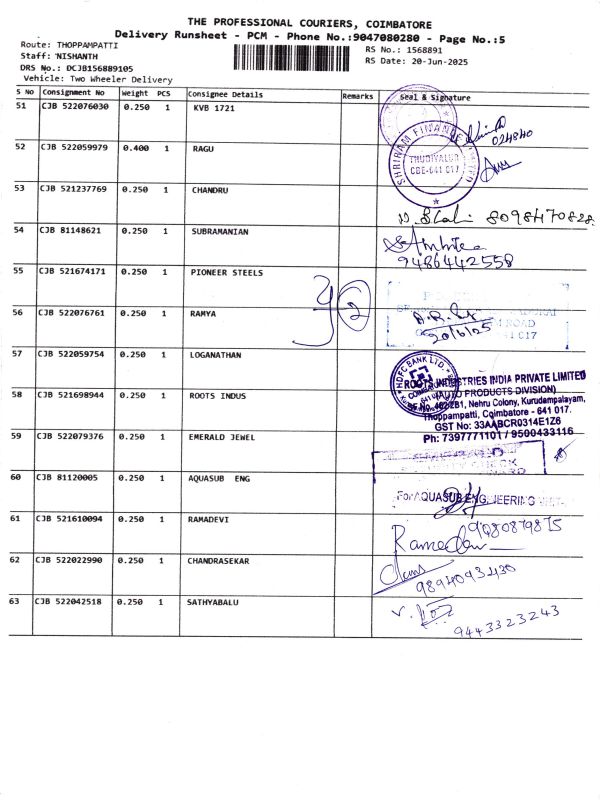 THE PROFESSIONAL COURIERS, COIMBATORE
Delivery Runsheet - PCM - Phone No.:9047080280 - Page No.:5
Route: THOPPAMPATTI
RS No.: 1568891
Staff: NISHANTH
RS Date: 20-Jun-2025
DRS No.: DCJB156889105
Vehicle: Two Wheeler Delivery
S No Consignment No Weight PCS Consignee Details Remarks Seal & Signature
51 CJB 522076030 0.250 1 KVB 1721
024840
52 CJB 522059979 0.400 1 RAGU
SHRIRAM FINANCE
THUDIYALUR
CBE-641 017
53 CJB 521237769 0.250 1 CHANDRU
8098470828
54 CJB 81148621 0.250 1 SUBRAMANIAN
9486442558
55 CJB 521674171 0.250 1 PIONEER STEELS
2
56 CJB 522076761 0.250 1 RAMYA
ROAD
20/6/25
57 CJB 522059754 0.250 1 LOGANATHAN
HDFC BANK LTD.
58 CJB 521698944 0.250 1 ROOTS INDUS
ROOTS INDUSTRIES INDIA PRIVATE LIMITED
(AUTO PRODUCTS DIVISION)
Nehru Colony, Kurudampalayam,
Thoppampatti, Coimbatore - 641 017.
GST No: 33AABCR0314E1Z6
Ph: 7397771101 / 9500433116
59 CJB 522079376 0.250 1 EMERALD JEWEL
60 CJB 81120005 0.250 1 AQUASUB ENG
For AQUASUB ENGINEERING
61 CJB 521610094 0.250 1 RAMADEVI
9080879875
62 CJB 522022990 0.250 1 CHANDRASEKAR
63 CJB 522042518 0.250 1 SATHYABALU
9443323243